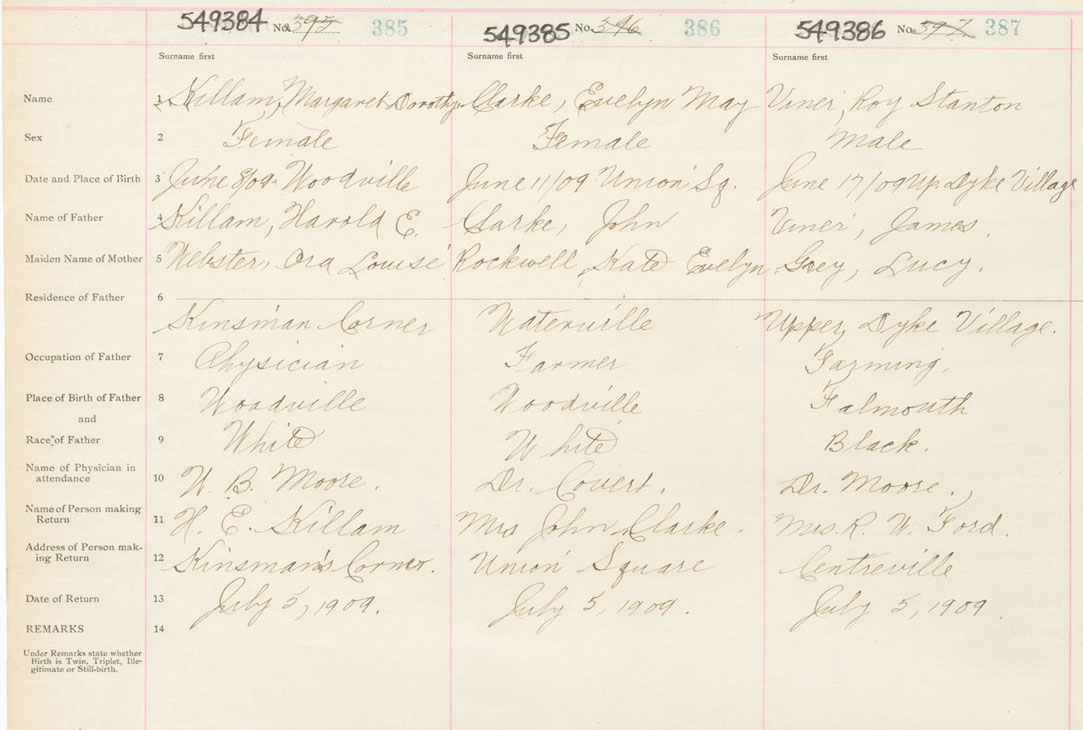 549384 No. 395 385 549385 No. 396 386 549386 No. 397 387
Surname first Surname first Surname first
Name 1 Killam, Margaret Dorothy Clarke, Evelyn May Viner, Roy Stanton
Sex 2 Female Female Male
Date and Place of Birth 3 June 8/09 Woodville June 11/09 Union Sq. June 17/09 Up Dyke Village
Name of Father 4 Killam, Harold E. Clarke, John Viner, James.
Maiden Name of Mother 5 Webster, Ora Louise Rockwell, Kate Evelyn Grey, Lucy.
Residence of Father 6
Kinsman Corner Waterville Upper Dyke Village.
Occupation of Father 7 Physician Farmer Farming.
Place of Birth of Father 8 Woodville Woodville Falmouth
and
Race of Father 9 White White Black.
Name of Physician in
attendance 10 W. B. Moore. Dr. Covert. Dr. Moore.
Name of Person making
Return 11 H. E. Killam Mrs John Clarke. Mrs. R. W. Ford.
Address of Person mak-
ing Return 12 Kinsman's Corner. Union Square Centreville
Date of Return 13 July 5, 1909. July 5, 1909. July 5, 1909.
REMARKS 14
Under Remarks state whether
Birth is Twin, Triplet, Ille-
gitimate or Still-birth.